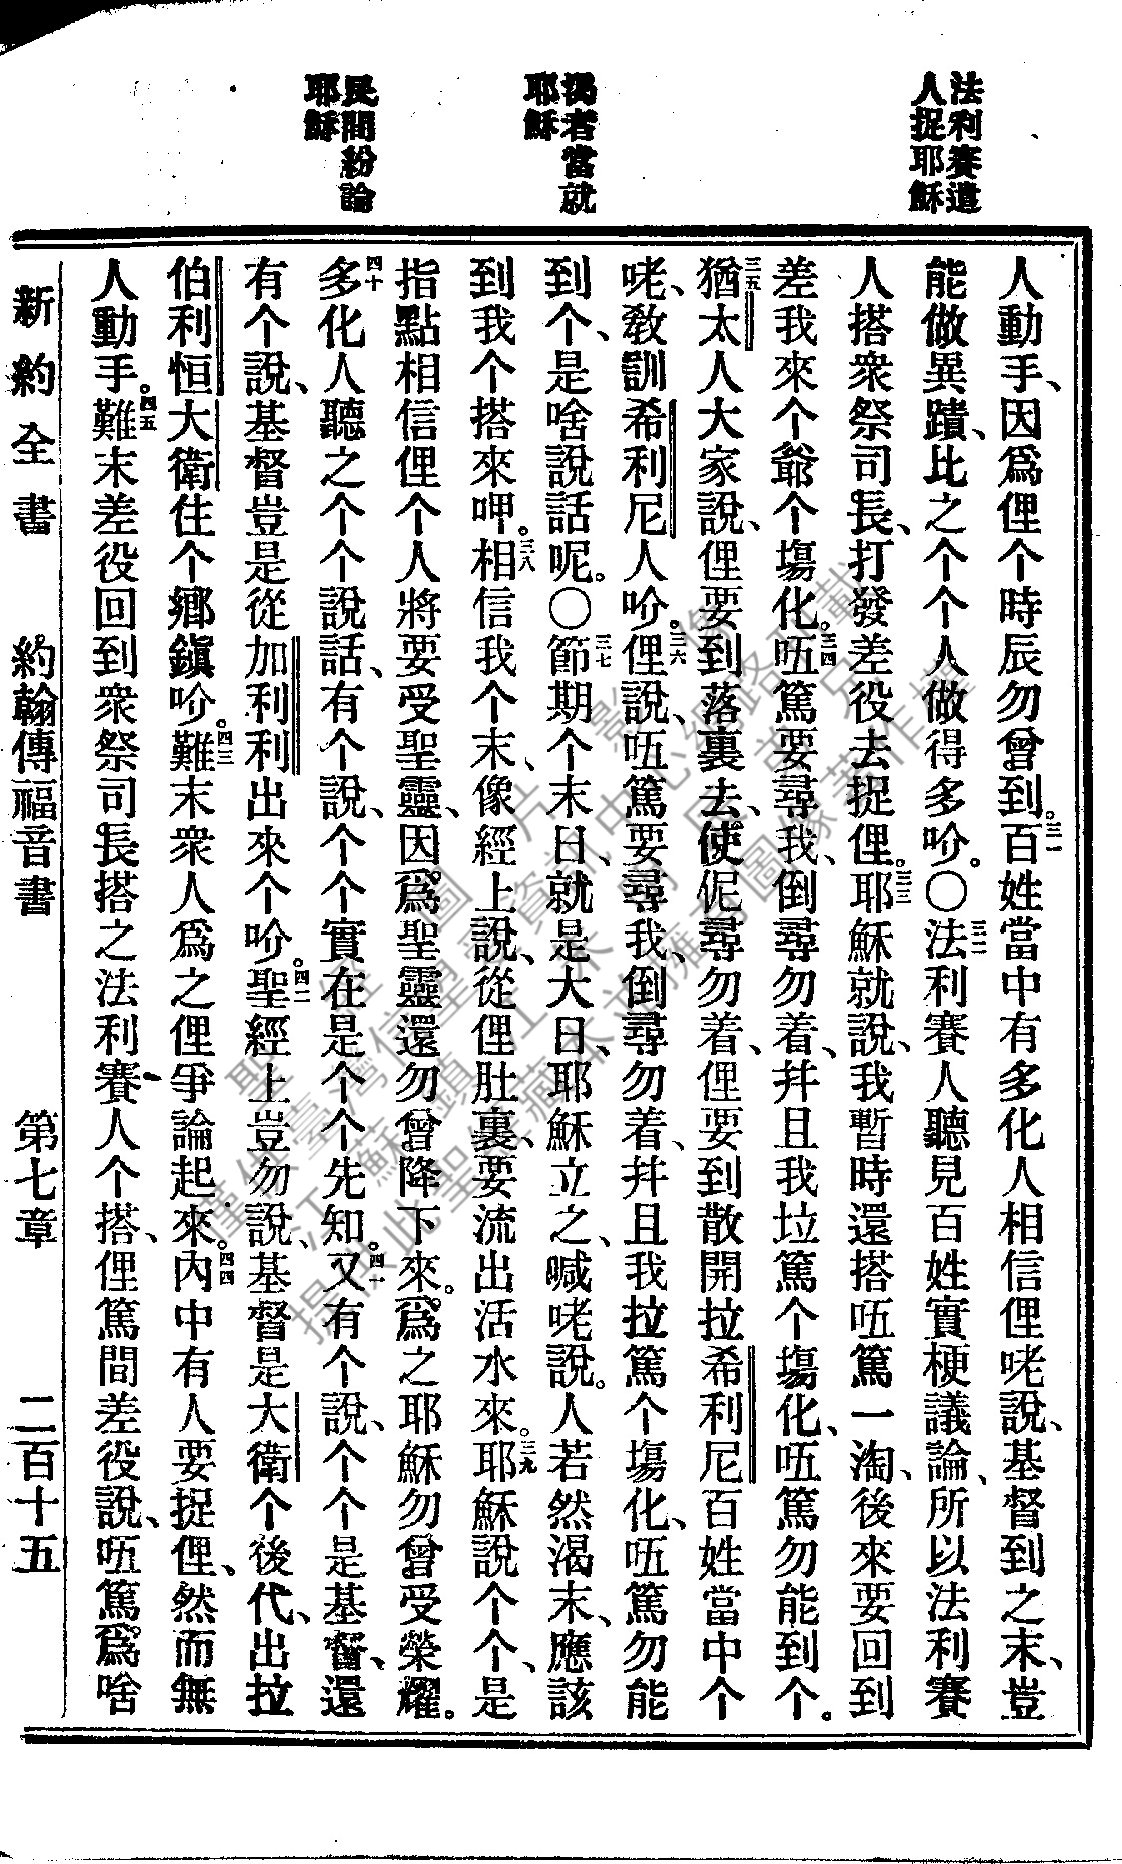 法利賽遣
人捉耶穌
渴者當就
耶穌
民間紛論
耶穌
人動手、因爲俚个時辰勿曾到。三一百姓當中有多化人相信俚咾說、基督到之末、豈
能做異蹟、比之个个人做得多吤。〇三二法利賽人聽見百姓實梗議論、所以法利賽
人搭衆祭司長、打發差役去捉俚。三三耶穌就說、我暫時還搭㕶篤一淘、後來要回到
差我來个爺个塲化。三四㕶篤要尋我、倒尋勿着、幷且我垃篤个塲化、㕶篤勿能到个。
三五猶太人大家說、俚要到落裏去、使伲尋勿着、俚要到散開拉希利尼百姓當中个
咾、敎訓希利尼人吤。三六俚說、㕶篤要尋我、倒尋勿着、幷且我拉篤个塲化、㕶篤勿能
到个、是啥說話呢。〇三七節期个末日、就是大日、耶穌立之、喊咾說。人若然渴末、應該
到我个搭來呷。三八相信我个末、像經上說、從俚肚裏、要流出活水來。三九耶穌說个个、是
指點相信俚个人將要受聖靈、因爲聖靈還勿曾降下來。爲之耶穌勿曾受榮耀。
四十多化人聽之个个說話、有个說、个个實在是个个先知。四十又有个說、个个是基督、還
有个說、基督豈是從加利利出來个吤。四二聖經上豈勿說、基督是大衛个後代、出拉
伯利恒大衛住个鄕鎭吤。四三難末衆人爲之俚爭論起來。四四內中有人要捉俚、然而無
人動手。四五難末差役回到衆祭司長搭之法利賽人个搭、俚篤間差役說、㕶篤爲啥
新約全書 約翰傳福音書 第七章 二百十五